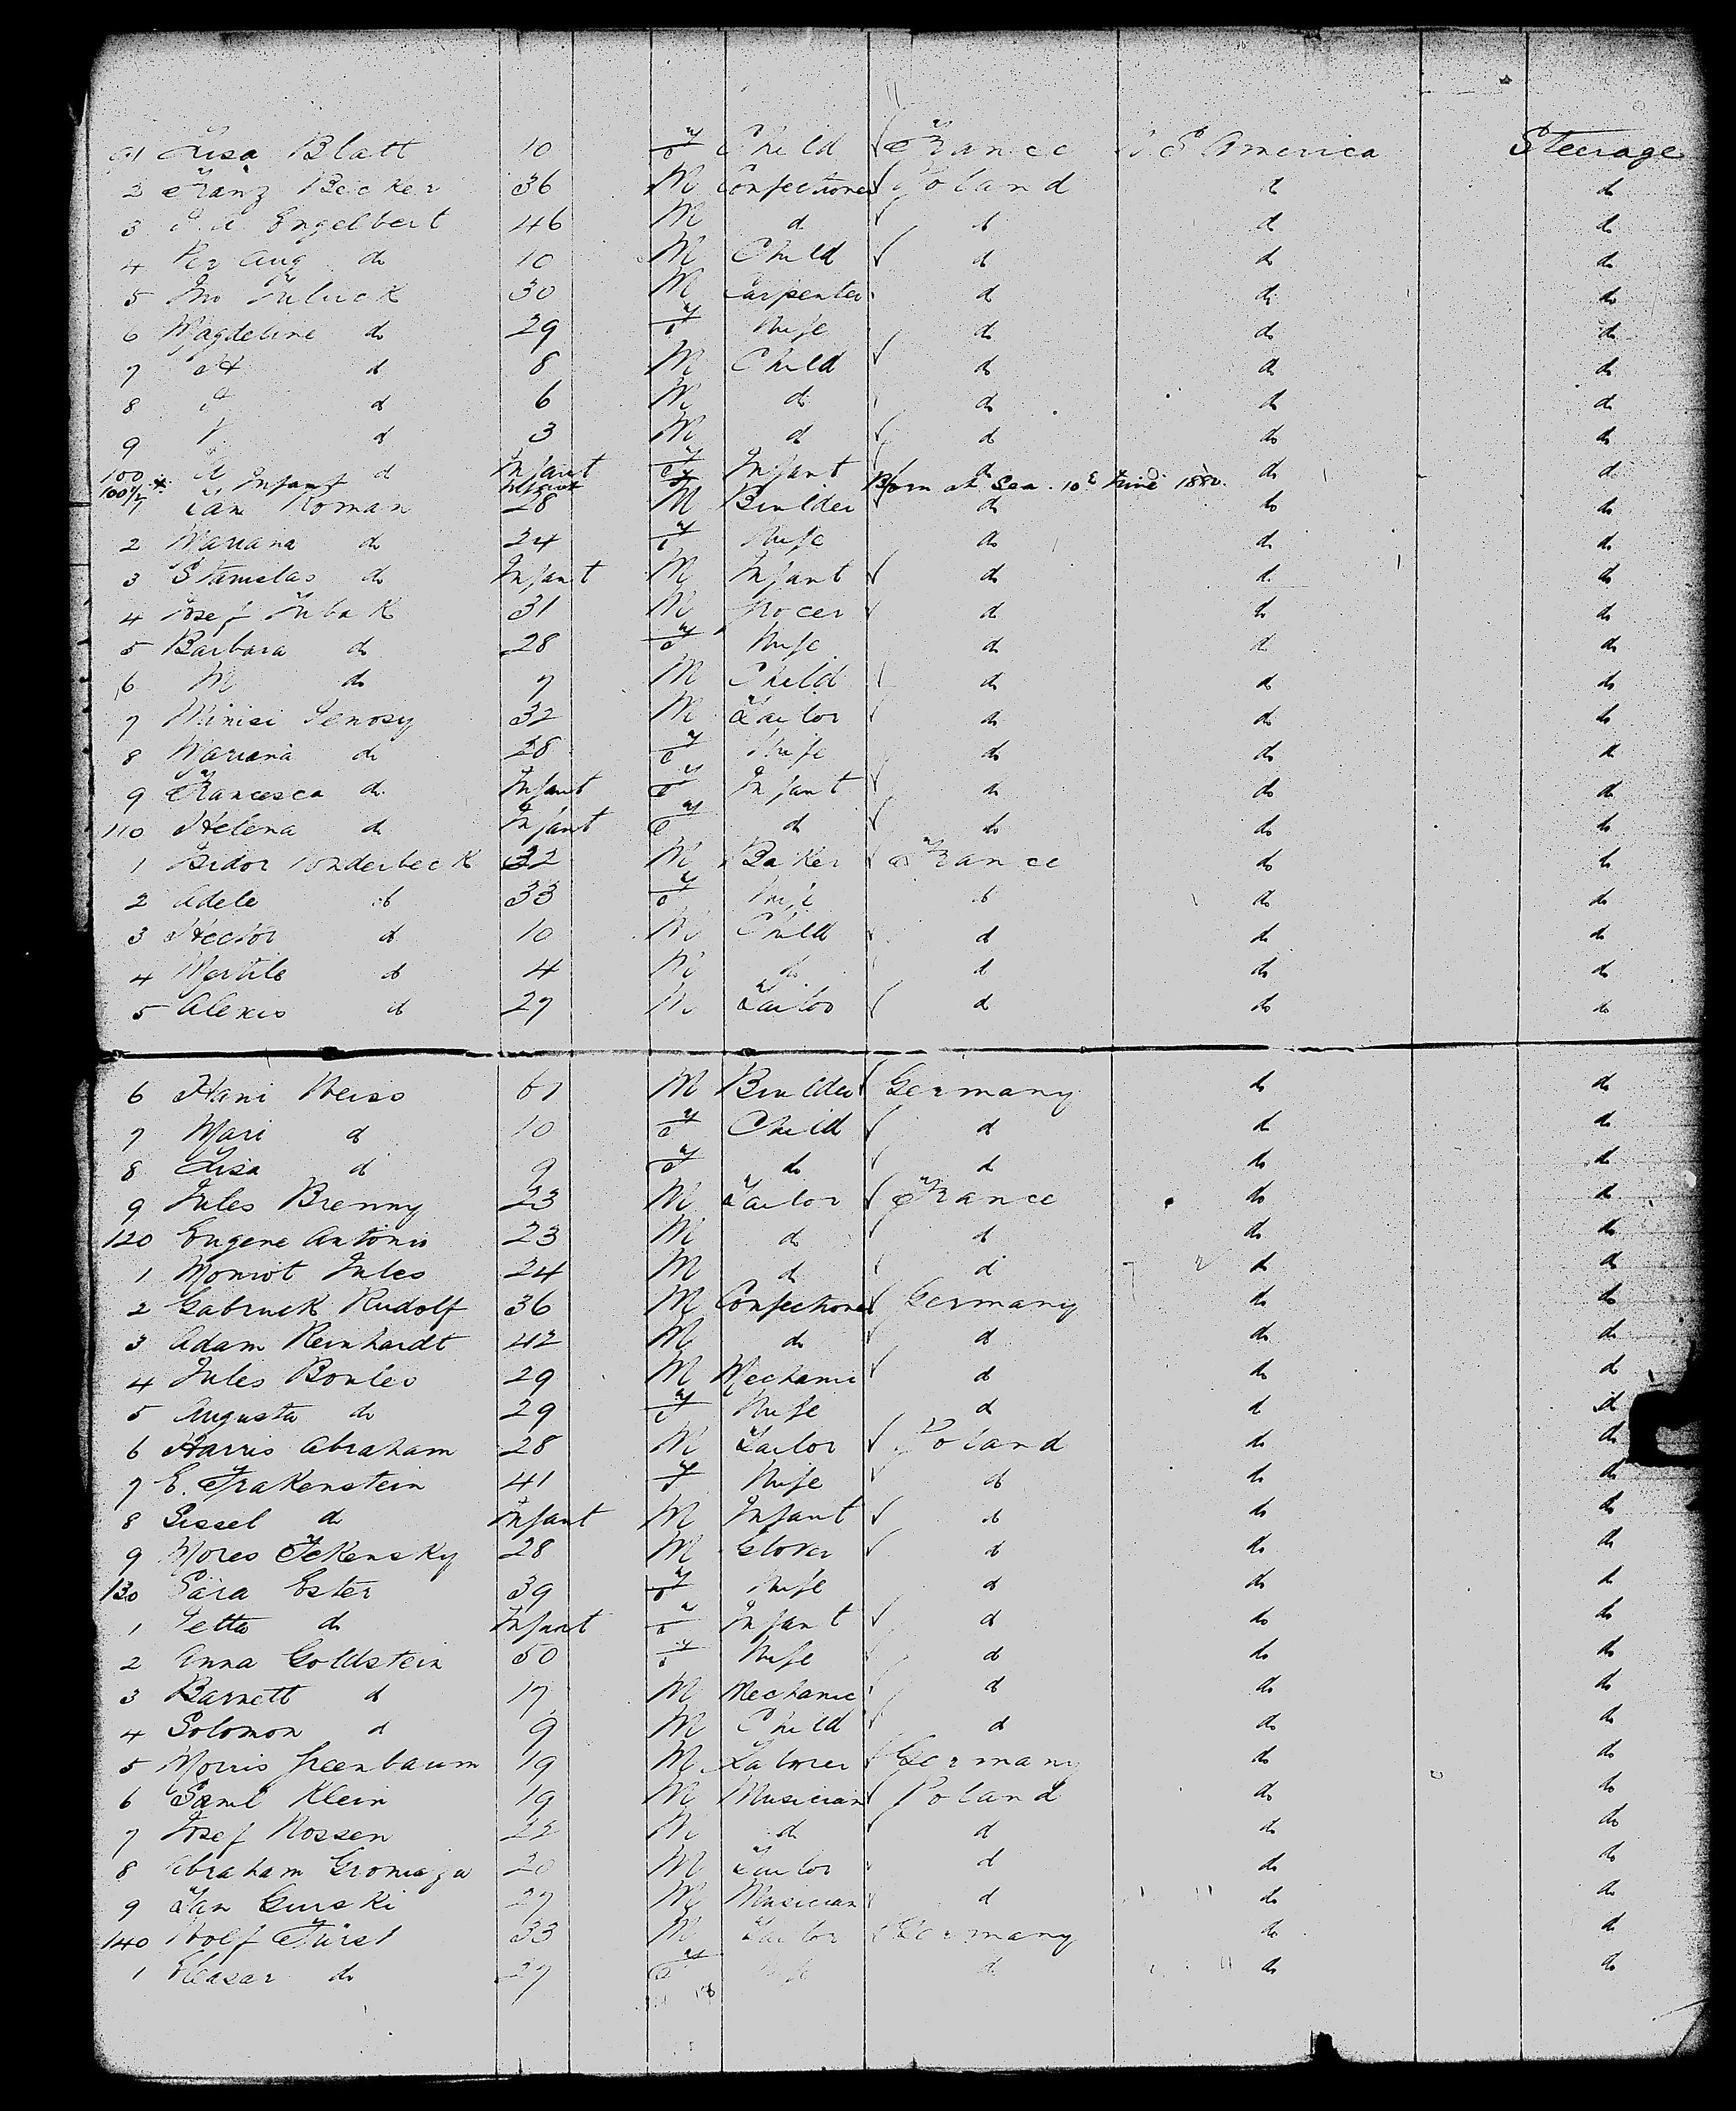 91 Lisa Blatt 10 F Child France U. S America Steerage
2 Franz Becker 36 M Confectioner Poland do do
3 Engelbert 46 M do do do do
4 Aug do 10 M Child do do do
5 Jno 30 M Carpenter do do do
6 Magdeline do 29 F Wife do do do
7 H do 8 M Child do do do
8 do 6 M do do do do
9 V do 3 M do do do do
100 A do Infant F Infant do do do
100½ Infant Infant F Born at Sea. 10th June 1880.
1 Jan Roman 28 M Builder do do do
2 Mariana do 24 F Wife do do do
3 Stanislas do Infant M Infant do do do
4 Josef 31 M Grocer do do do
5 Barbara do 28 F Wife do do do
6 M do 7 M Child do do do
7 32 M Tailor do do do
8 Mariana do 28 F Wife do do do
9 Francesca do Infant F Infant do do do
110 Helena do Infant F do do do do
1 Isidor Vonderbeck 32 M Baker France do do
2 Adele do 33 F Wife do do do
3 Hector do 10 M Child do do do
4 do 4 M do do do do
5 Alexis do 27 M Tailor do do do
6 Hani Weiss M Builder Germany do do
7 Mari do 10 F Child do do do
8 Lisa do 9 F do do do do
9 Jules Brenny 23 M Tailor France do do
120 Eugene Antonis 23 M do do do do
1 Moniot Jules 24 M do do do do
2 Gabruck Rudolf 36 M Confectioner Germany do do
3 Adam Reinhardt 42 M do do do do
4 Jules Boules 29 M Mechanic do do do
5 Augusta do 29 F Wife do do do
6 Harris Abraham 28 M Tailor Poland do do
7 E. Frakenstein 41 F Wife do do do
8 Gissel do Infant M Infant do do do
9 Mores Fekensky 28 M Glover do do do
130 Sara Ester 39 F Wife do do do
1 Yetta do Infant F Infant do do do
2 Anna Goldstein 50 F Wife do do do
3 Barnett do 17 M Mechanic do do do
4 Solomon do 9 M Child do do do
5 Morris Greenbaum 19 M Laborer Germany do do
6 Saml Klein 19 M Musician Poland do do
7 Josef Nossen 22 M do do do do
8 Abraham 20 M Tailor do do do
9 Jan Gurski 27 M Musician do do do
140 Wolf Fürst 33 M Tailor Germany do do
1 Eleasar do 27 F Wife do do do